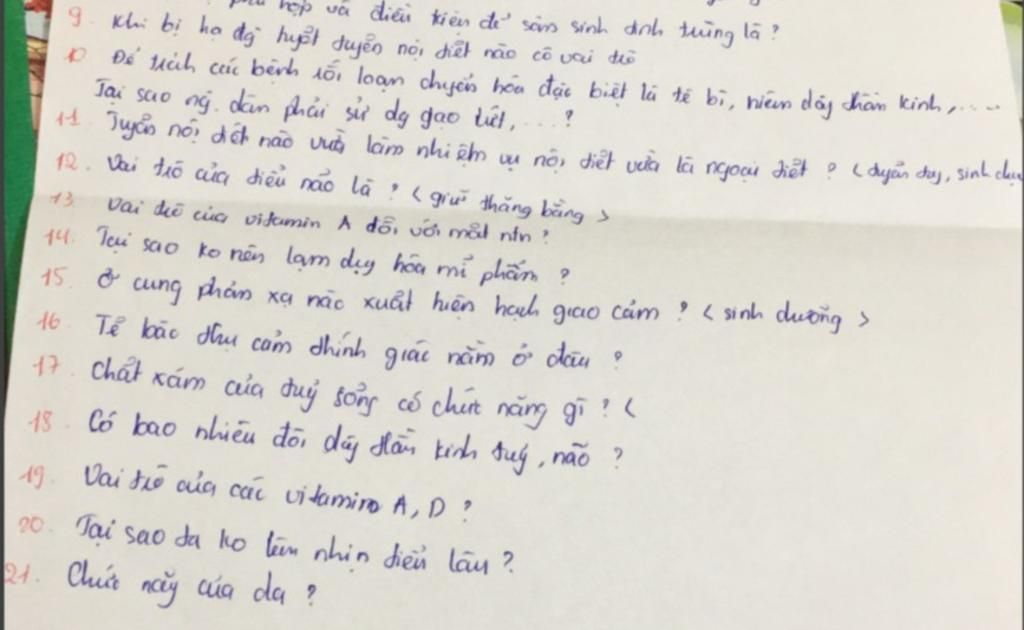 hợp và điều kiện để sản sinh tinh trùng là ?
9. Khi bị hạ đg huyết tuyến nội tiết nào có vai trò
10 Để tránh các bệnh rối loạn chuyển hóa đặc biệt là tê bì, viêm dây thần kinh,.....
Tại sao ng. dân phải sử dg gạo lứt,...?
11. Tuyến nội tiết nào vừa làm nhiệm vụ nội tiết vừa là ngoại tiết ? <tuyến tụy, sinh dục
12. Vai trò của tiểu não là ? < giữ thăng bằng >
13. Vai trò của vitamin A đối với mắt ntn ?
14. Tại sao ko nên lạm dụg hóa mĩ phẩm ?
15. Ở cung phản xạ nào xuất hiện hạch giao cảm ? < sinh dưỡng >
16. Tế bào thụ cảm thính giác nằm ở đâu ?
17. Chất xám của tuỷ sống có chức năng gì ? <
18. Có bao nhiêu đôi dây thần kinh tuỷ, não ?
19. Vai trò của các vitamin A, D ?
20. Tại sao ta ko lên nhịn tiểu lâu ?
21. Chức năg của da ?